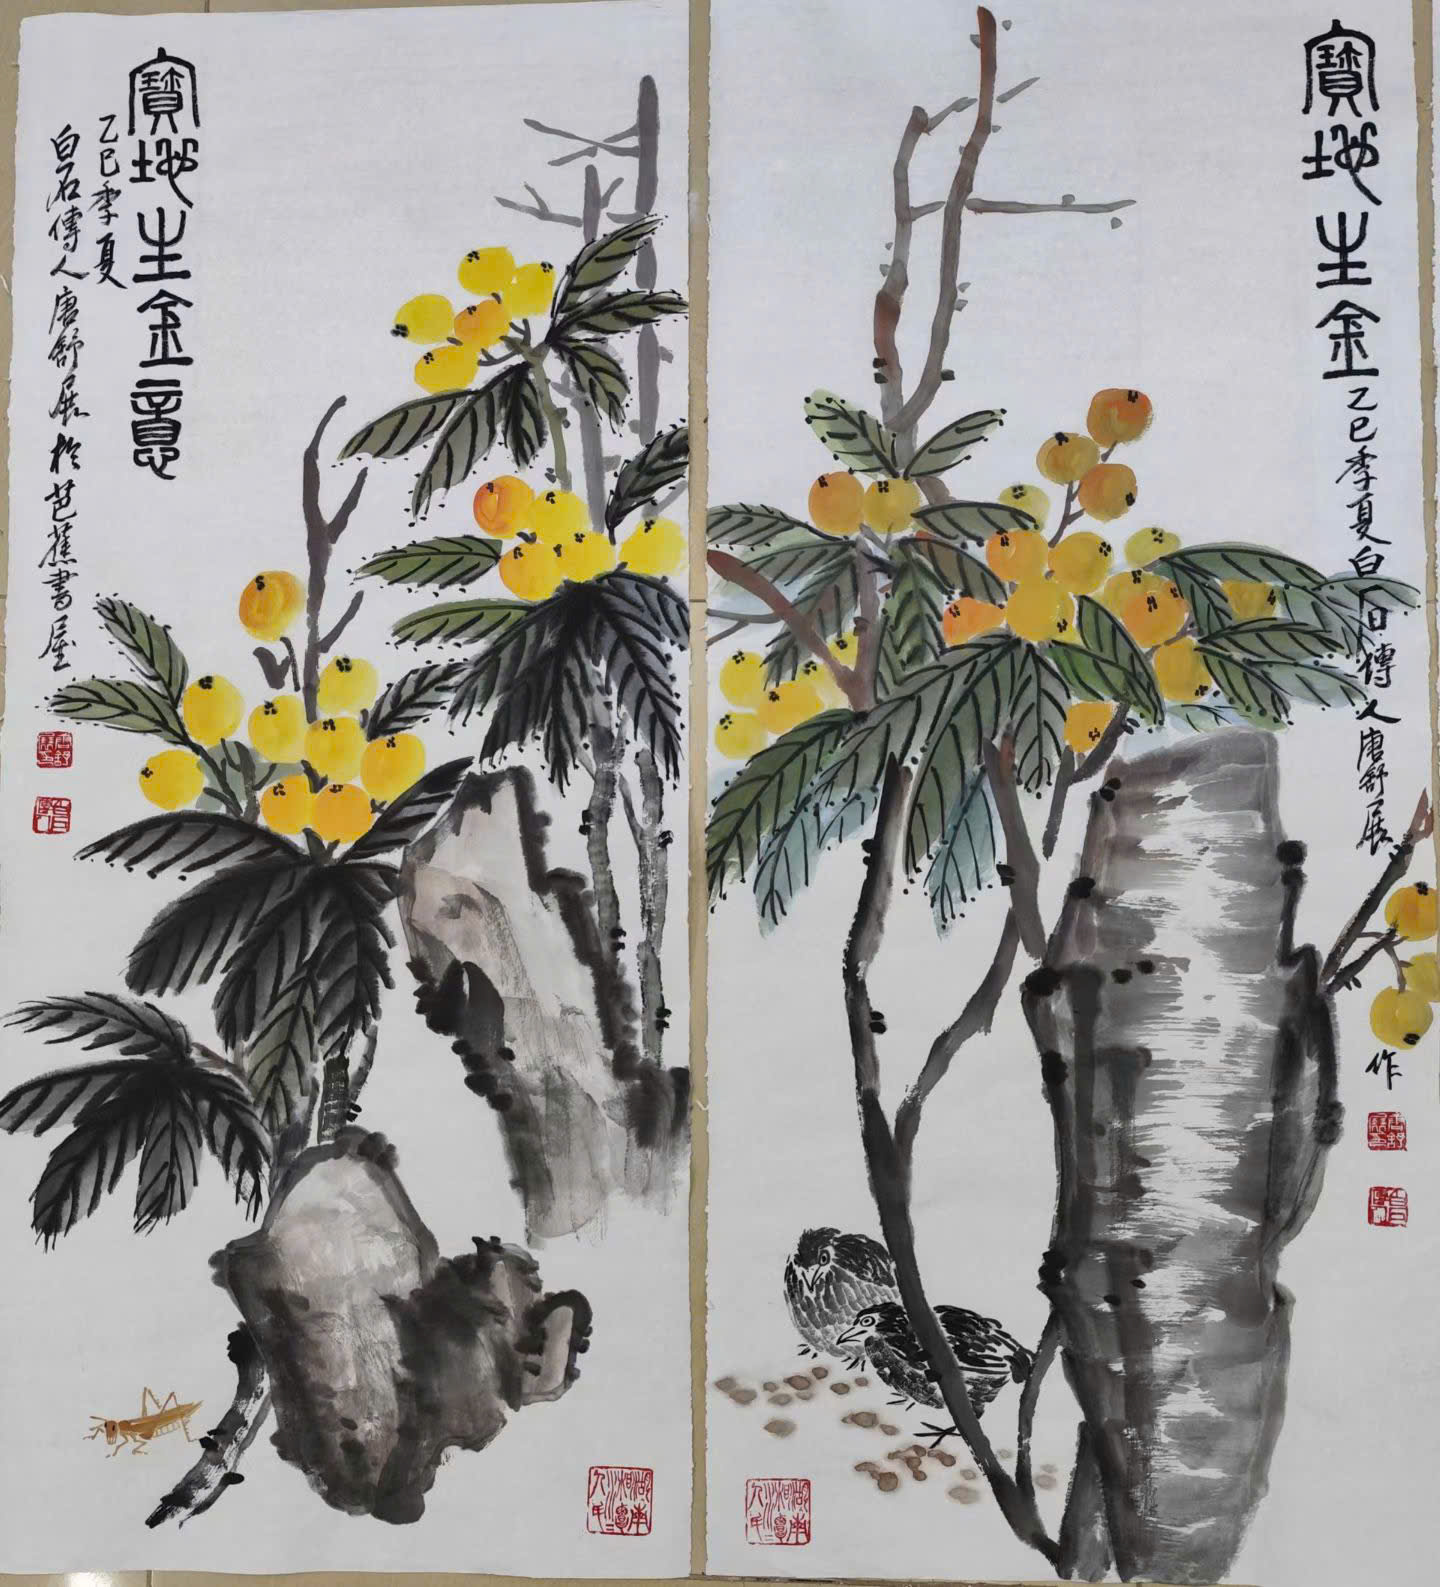 寶地生金意
乙巳季夏
白石傳人唐舒展於芭蕉書屋
寶地生金
乙巳季夏白石傳人唐舒展
作